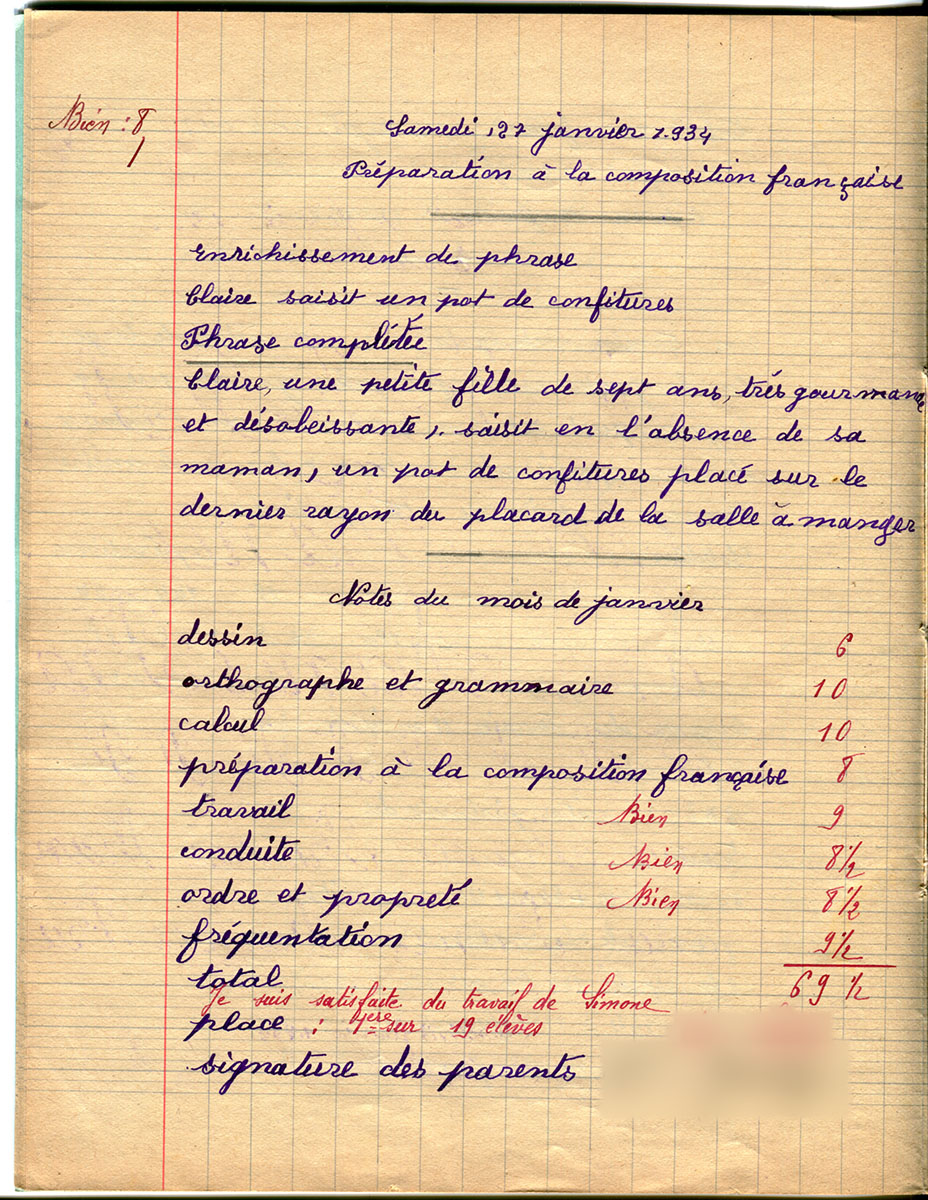 Bien : 8
Samedi, 27 janvier 1.934
Préparation à la composition française
Enrichissement de phrase
Claire saisit un pot de confitures
Phrase complétée
Claire, une petite fille de sept ans, trés gourmande
et désobeissante, saisit en l'absence de sa
maman, un pot de confitures placé sur le
dernier rayon du placard de la salle à manger
Notes du mois de janvier
dessin 6
orthographe et grammaire 10
calcul 10
préparation à la composition française 8
travail Bien 9
conduite Bien 8 1/2
ordre et propreté Bien 8 1/2
fréquentation 9 1/2
total 69 1/2
Je suis satisfaite du travail de Simone
place : 1ere sur 19 élèves
signature des parents